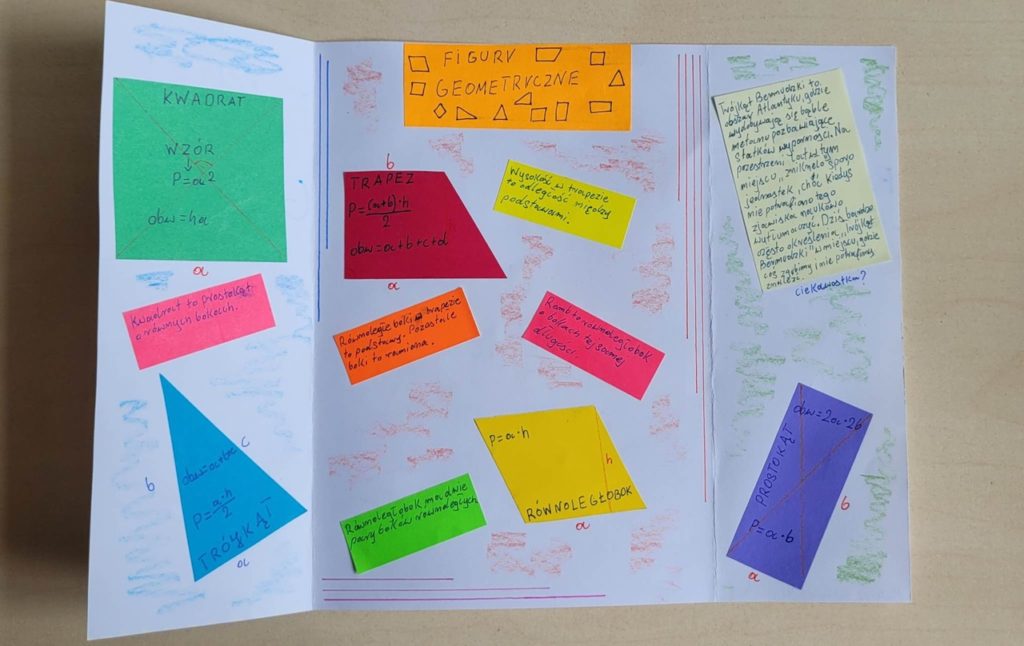 KWADRAT
WZÓR
P=a²
obw=4a
a
Kwadrat to prostokąt
o równych bokach.
b
c
obw=a+b+c
P=a·h/2
TRÓJKĄT
a
FIGURY
GEOMETRYCZNE
b
TRAPEZ
P=(a+b)·h/2
obw=a+b+c+d
a
Wysokość w trapezie
to odległość między
podstawami.
Równoległe boki w trapezie
to podstawy. Pozostałe
boki to ramiona.
Romb to równoległobok
o bokach tej samej
długości.
P=a·h
h
RÓWNOLEGŁOBOK
a
Równoległobok ma dwie
pary boków równoległych
Trójkąt Bermudzki to
obszar Atlantyku, gdzie
wydobywają się bąble
metanu pozbawiające
statków wyporności. Na
przestrzeni lat w tym
miejscu "zniknęło" sporo
jednostek, choć kiedyś
nie potrafiono tego
zjawiska naukowo
wytłumaczyć. Dziś bardzo
często określenia "Trójkąt
Bermudzki" miejscu, gdzie
coś zgubimy i nie potrafimy
znaleźć.
ciekawostka?
obw=2a·2b
PROSTOKĄT
P=a·b
b
a